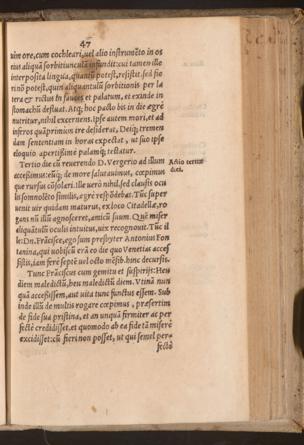 47
uim ore, cum cochleari, uel alio instrumẽto in os
eius aliquã sorbitiunculã infundit: cui tamen ille
interposita lingua, quantũ potest, resistit. sed fio
rinõ potest, quin aliquantulũ sorbitionis per la
tera & rictus in fauces et palatum, et exinde in
stomachũ defluat. Atq; hoc pacto bis in die ægrè
nutritur, nihil excernens. Ipse autem mori, et ad
inferos quã primùm ire desiderat, Deiq; tremen
dam sententiam in horas expectat, ut suo ipse
eloquio apertissimè palamq; testatur.
Tertio die cũ reuerendo D. Vergerio ad illum
accessimus: eũq; de more salutauimus, cœpimus
que rursus cõsolari. Ille uerò nihil, sed clausis ocu
lis somnolẽto similis, ægrè respõdebat. Tũc super
uenit uir quidam maturus, ex loco Citadellæ, ro
gans nũ illũ agnosceret, amicũ suum. Quẽ miser
aliquãtulũ oculis intuitus, uix recognouit. Tũc il
le: Dn. Frãcisce, ego sum presbyter Antonius Fon
tanina, qui uobiscũ erã eo die quo Venetias acces
sistis, iam ferè septẽ uel octo mẽsib. hinc decursis.
Tunc Frãciscus cum gemitu et suspirijs: Heu
diem maledictũ, heu maledictũ diem. Vtinã nun
quã accessissem, aut uita tunc functus essem. Sub
inde illũ de multis rogare cœpimus, præsertim
de fide sua pristina, et an unquã firmiter ac per
fectè credidisset, et quomodo ab ea fide tã miserè
excidisset: cũ fieri non posset, ut qui semel per-
fectè
tertia
diei.